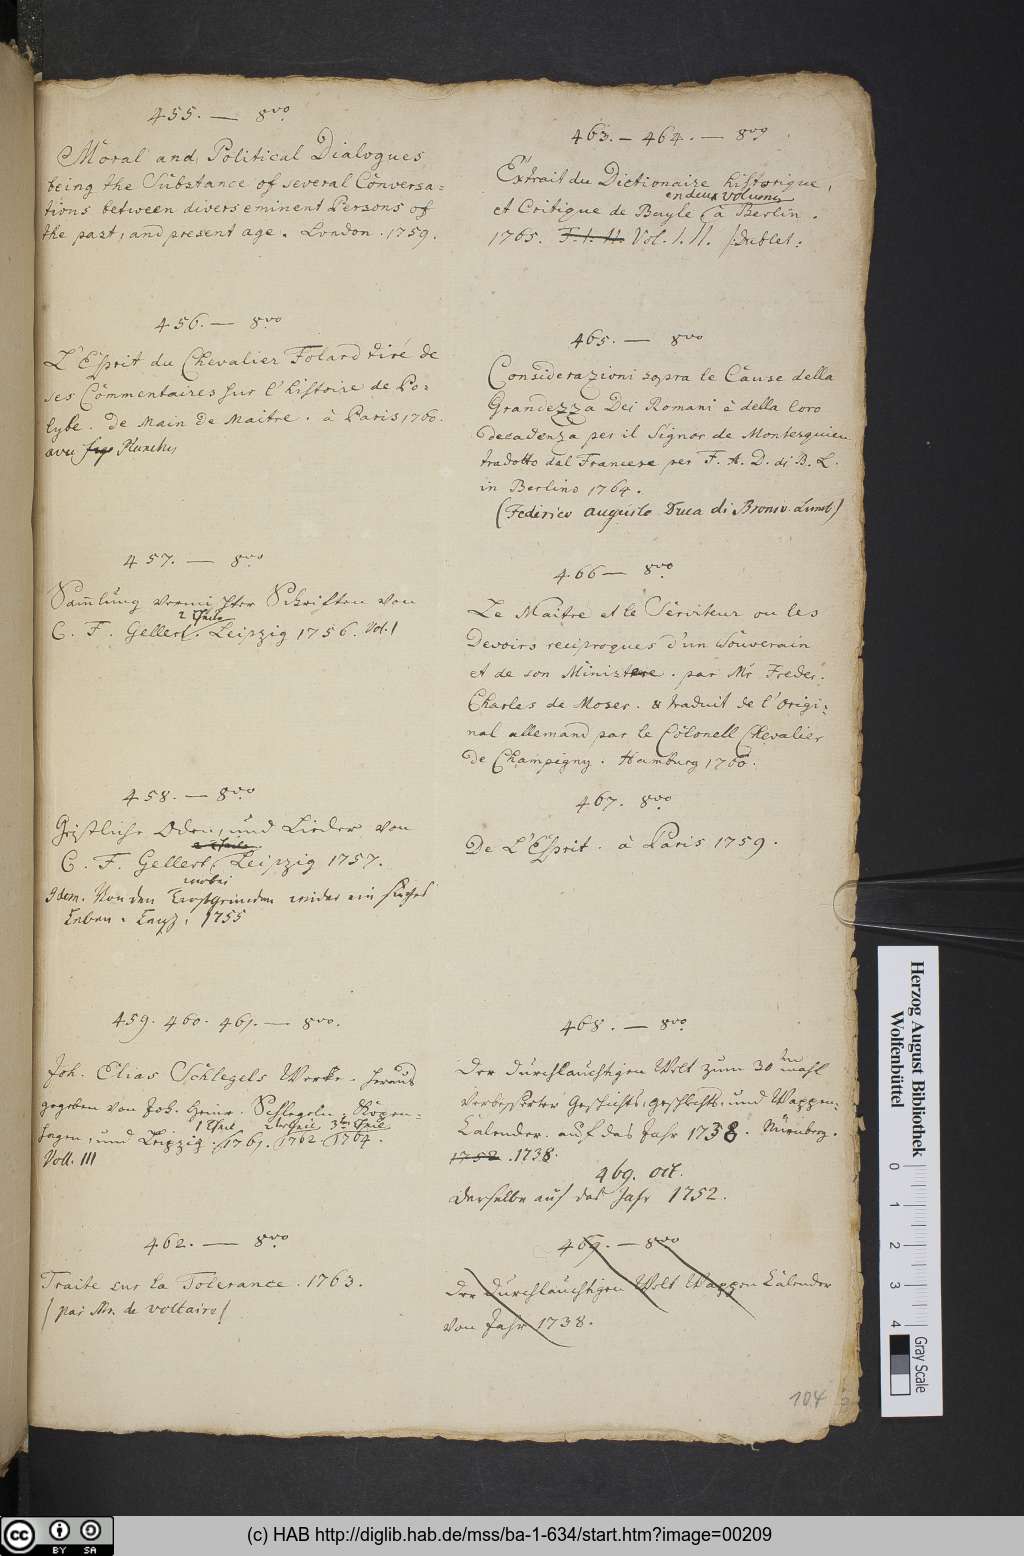 455. — 8vo
Moral and Political Dialogues
being the Substance of several Conversa=
tions between divers eminent Persons of
the past, and present age. London. 1759.
456. — 8vo
L'Esprit du Chevalier Folard tiré de
ses Commentaires sur l'histoire de Po=
lybe. De Main de Maitre. à Paris, 1760.
avec
457. — 8vo
Samlung vermischter Schriften von
2 Theile
C. F. Gellert. Leipzig 1756. Vol. I
458. — 8vo
Geistliche Oden, und Lieder von
2 Theile
C. F. Gellert, Leipzig 1757.
wobei
Idem. Von den Trostgründen wider ein sieches
Leben. Leipz. 1755
459. 460. 461. — 8vo.
Joh. Elias Schlegels Werke. heraus
gegeben von Joh. Heinr. Schlegeln. Koppen=
1 Theil 2ter Theil 3ter Theil
hagen, und Leipzig. 1761. 1762. 1764.
Voll. III
462. — 8vo
Traite sur la Tolerance. 1763.
(par Mr. de Voltaire)
463. — 464. — 8vo
Extrait du Dictionaire historique,
en deux volumes
et Critique de Bayle à Berlin.
1765. T. I. II. Vol. I. II. /Dublet.
465. — 8vo
Considerazioni sopra le Cause della
Grandezza Dei Romani è della loro
Decadenza per il Signor de Montesquieu
tradotto dal Francese per F. A. D. di B. L.
in Berlino 1764.
(Federico Augusto Duca di Bronsv. Luneb)
466 — 8vo
Le Maitre et le Serviteur ou les
Devoirs reciproques d'un Souverain
et de son Ministre. par Mr Freder.
Charles de Moser. traduit de l'Origi=
nal allemand par le Colonell Chevalier
De Champigny. Hamburg 1760.
467. 8vo
De L'Esprit. à Paris 1759.
468. — 8vo
Der Durchlauchtigen Welt zum 30 ten mahl
verbesserter Geschichts, Geschlechts, und Wappen=
Kalender. auf das Jahr 1738. Nürnberg.
1752. 1738.
469. oct.
derselbe auf das Jahr 1752.
469. — 8vo
Der Durchlauchtigen Welt Wappen Kalender
von Jahr 1738.
104
Herzog August Bibliothek
Wolfenbüttel
0 1 2 3 4
Gray Scale
cc BY SA
(c) HAB http://diglib.hab.de/mss/ba-1-634/start.htm?image=00209